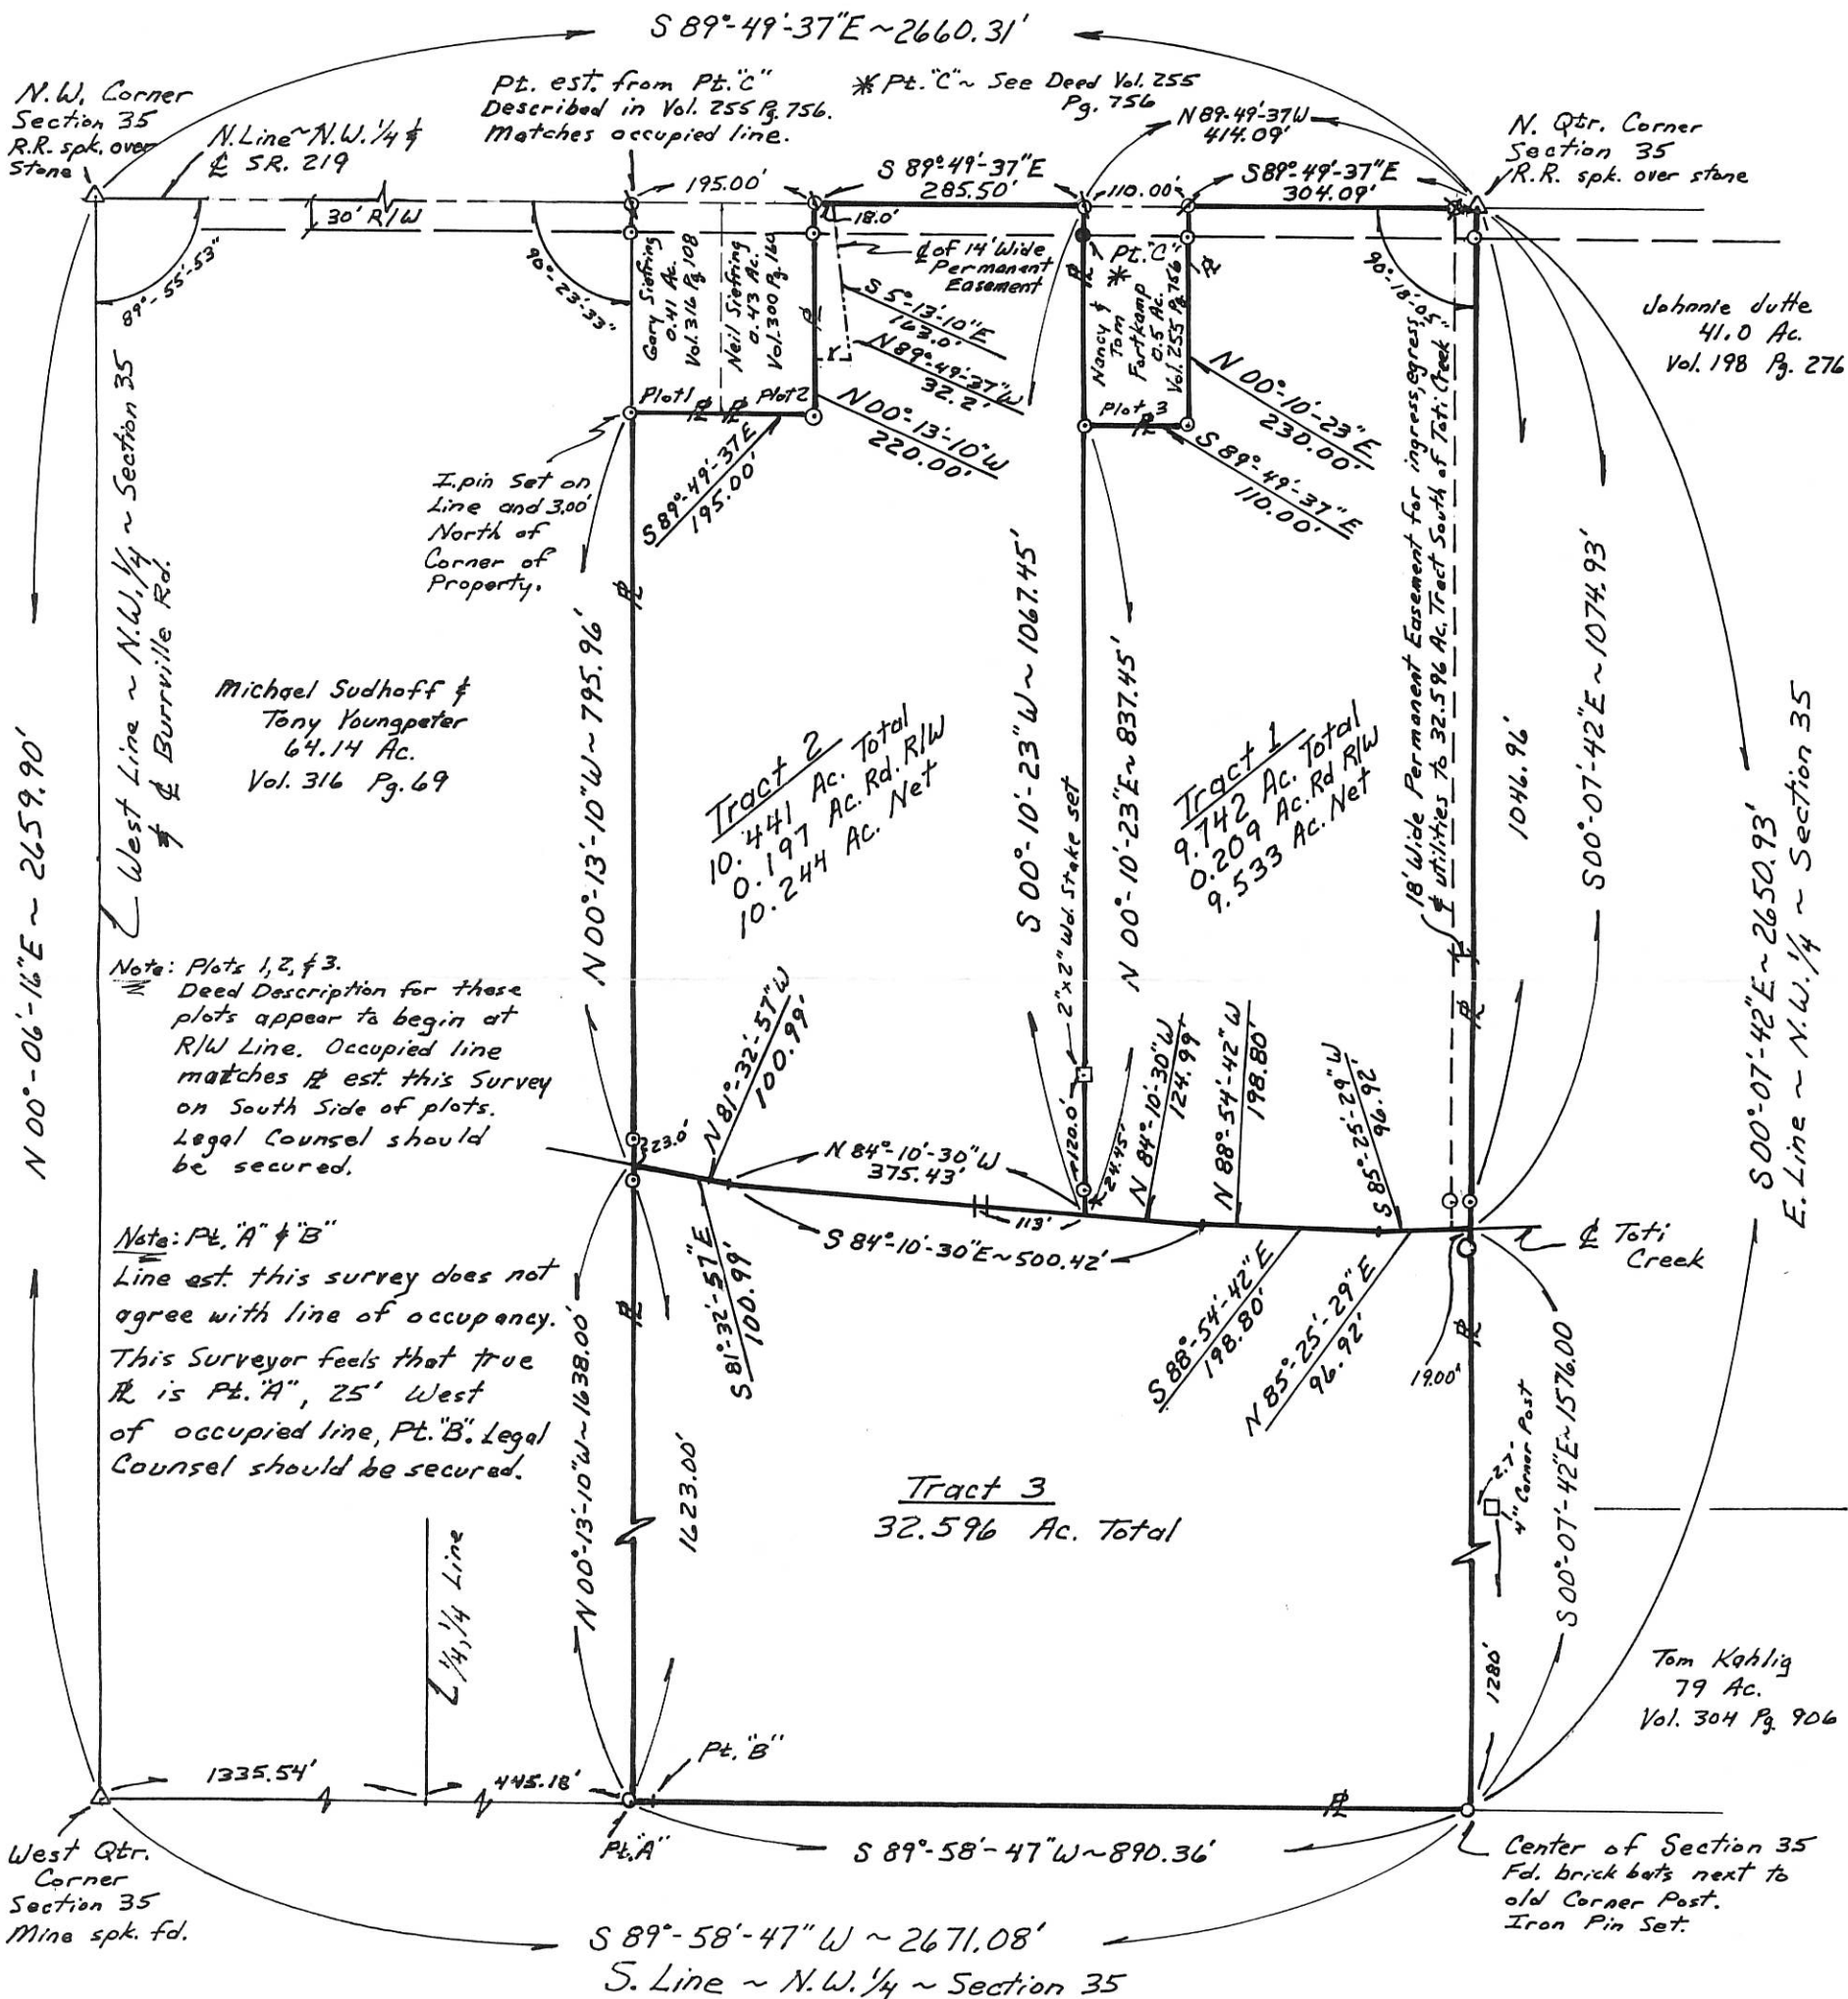 S 89°-49'-37"E ~ 2660.31'
N.W. Corner
Section 35
R.R. spk. over
Stone
N. Line ~ N.W. 1/4 &
℄ SR. 219
Pt. est. from Pt. "C"
Described in Vol. 255 Pg. 756.
Matches occupied line.
* Pt. "C" ~ See Deed Vol. 255
Pg. 756
N 89-49'-37W
414.09'
N. Qtr. Corner
Section 35
R.R. spk. over stone
195.00'
S 89°-49'-37"E
285.50'
110.00'
S 89°-49'-37"E
304.09'
30' R/W
18.0'
89°-55'-53"
90°-23'-33"
90°-18'-05"
Gary Siefring
0.41 Ac.
Vol. 316 Pg. 108
Neil Siefring
0.43 Ac.
Vol. 300 Pg. 160
Plot 1
Plot 2
℄ of 14' Wide
Permanent
Easement
S 5°-13'-10"E
163.0'
N 89°-49'-37"W
32.2'
N 00°-13'-10"W
220.00'
S 89°-49'-37E
195.00'
Pt. "C"
*
Nancy &
Tom
Fortkamp
0.5 Ac.
Vol. 255 Pg. 756
Plot 3
N 00°-10'-23"E
230.00'
S 89°-49'-37"E
110.00'
Johnnie Jutte
41.0 Ac.
Vol. 198 Pg. 276
I.pin Set on
Line and 3.00'
North of
Corner of
Property.
West Line ~ N.W. 1/4 ~ Section 35
& ℄ Burrville Rd.
N 00°-06'-16"E ~ 2659.90'
Michael Sudhoff &
Tony Youngpeter
64.14 Ac.
Vol. 316 Pg. 69
N 00°-13'-10"W ~ 795.96'
Tract 2
10.441 Ac. Total
0.197 Ac. Rd. R/W
10.244 Ac. Net
S 00°-10'-23"W ~ 1067.45'
2"x2" Wd. Stake set
N 00°-10'-23"E ~ 837.45'
Tract 1
9.742 Ac. Total
0.209 Ac. Rd R/W
9.533 Ac. Net
18' Wide Permanent Easement for ingress, egress,
& utilities to 32.596 Ac. Tract South of Toti Creek
1046.96'
S 00°-07'-42"E ~ 1074.93'
S 00°-07'-42"E ~ 2650.93'
E. Line ~ N.W. 1/4 ~ Section 35
Note: Plots 1, 2, & 3.
Deed Description for these
plots appear to begin at
R/W Line. Occupied line
matches ⅊ est. this Survey
on South Side of plots.
Legal Counsel should
be secured.
23.0'
N 81°-32'-57"W
100.99'
N 84°-10'-30"W
375.43'
120.0'
24.45'
N 84°-10'-30"W
124.99'
N 88°-54'-42"W
198.80'
S 85°-25'-29"W
96.92'
113'
S 84°-10'-30"E ~ 500.42'
S 81°-32'-57"E
100.99'
S 88°-54'-42"E
198.80'
N 85°-25'-29"E
96.92'
℄ Toti
Creek
Note: Pt. "A" & "B"
Line est. this survey does not
agree with line of occupancy.
This Surveyor feels that true
⅊ is Pt. "A", 25' West
of occupied line, Pt. "B". Legal
Counsel should be secured.
N 00°-13'-10"W ~ 1638.00'
1623.00'
19.00'
Tract 3
32.596 Ac. Total
2.7'
4" Corner Post
S 00°-07'-42"E ~ 1576.00
1280'
Tom Kahlig
79 Ac.
Vol. 304 Pg. 906
1/4, 1/4 Line
1335.54'
445.18'
Pt. "B"
Pt. "A"
S 89°-58'-47"W ~ 890.36'
West Qtr.
Corner
Section 35
Mine spk. fd.
Center of Section 35
Fd. brick bats next to
old Corner Post.
Iron Pin Set.
S 89°-58'-47"W ~ 2671.08'
S. Line ~ N.W. 1/4 ~ Section 35